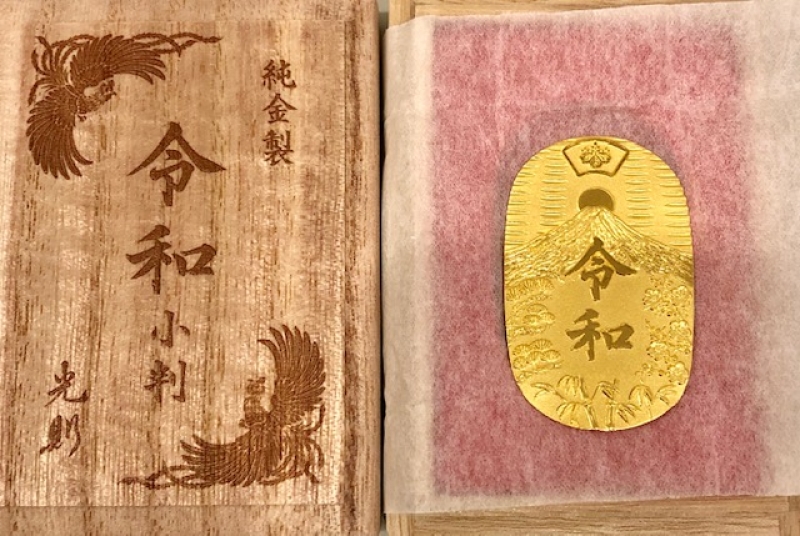 純金製
令和小判
光則
令和